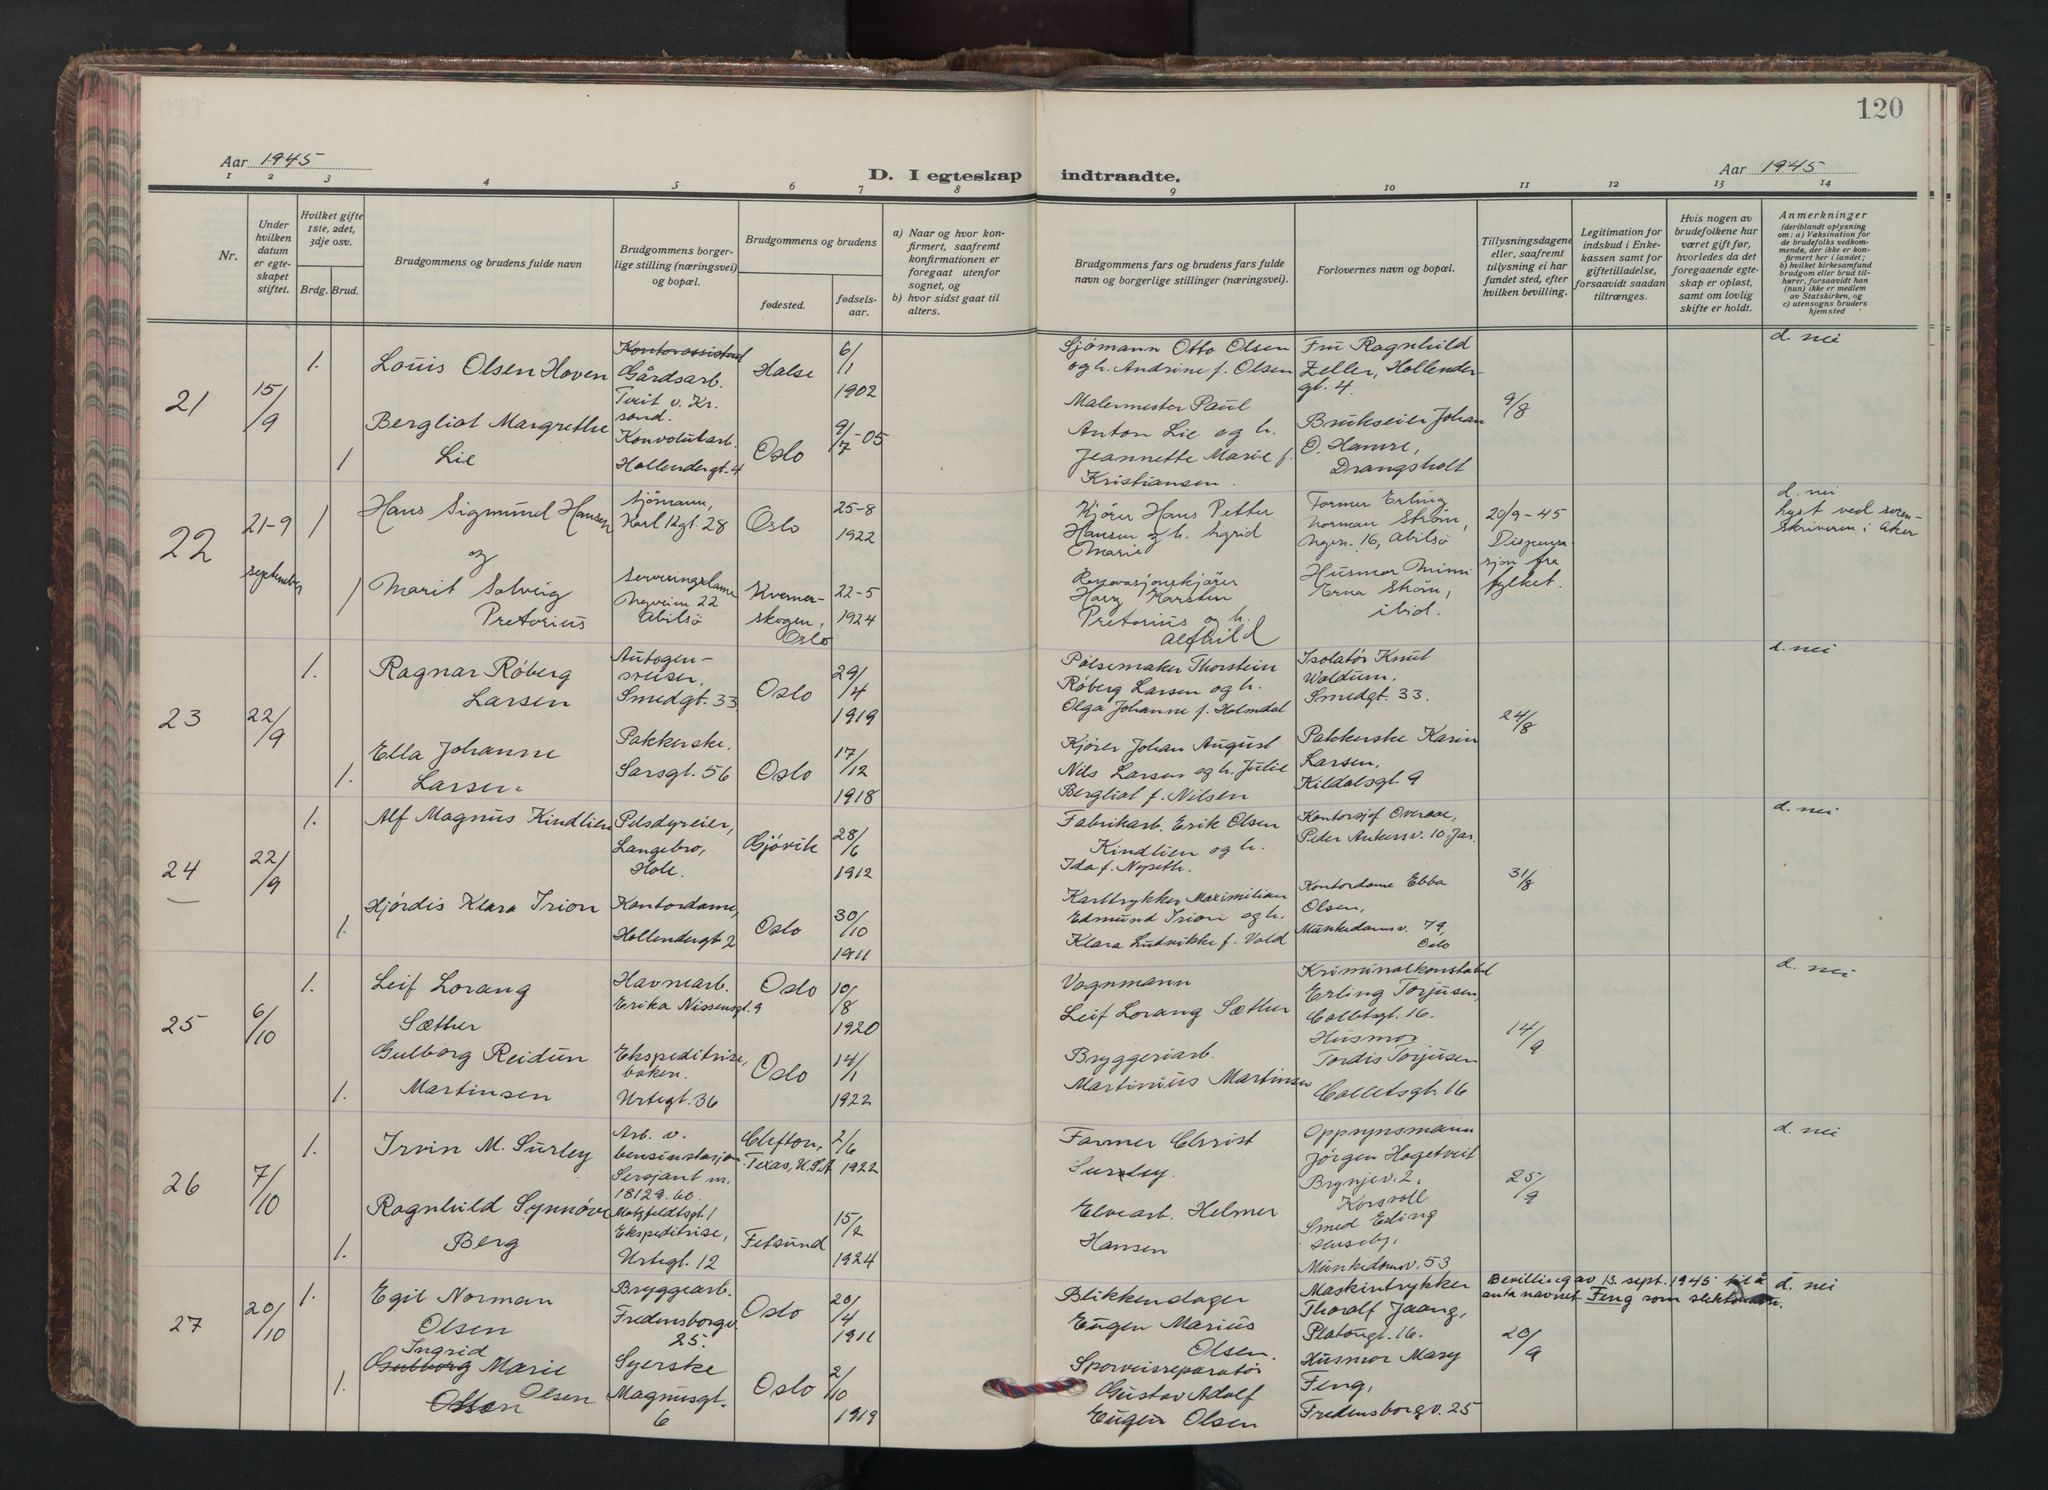 120
Aar 1945
D. I egteskap indtraadte.
Aar 1945
1 2 3 4 5 6 7 8 9 10 11 12 13 14
Nr.
Under hvilken datum er egteskapet stiftet.
Hvilket gifte 1ste, 2det, 3dje osv.
Brdg. Brud.
Brudgommens og brudens fulde navn
Brudgommens borgerlige stilling (næringsvei) og bopæl.
Brudgommens og brudens
fødested.
fødselsaar.
a) Naar og hvor konfirmert, saafremt konfirmationen er foregaat utenfor sognet, og
b) hvor sidst gaat til alters.
Brudgommens fars og brudens fars fulde navn og borgerlige stillinger (næringsvei).
Forlovernes navn og bopæl.
Tillysningsdagene eller, saafremt tillysning ei har fundet sted, efter hvilken bevilling.
Legitimation for indskud i Enkekassen samt for giftetilladelse, forsaavidt saadan tiltrænges.
Hvis nogen av brudefolkene har været gift før, hvorledes da det foregaaende egteskap er opløst, samt om lovlig skifte er holdt.
Anmerkninger
(deriblandt oplysning om: a) Vaksination for de brudefolks vedkommende, der ikke er konfirmert her i landet;
b) hvilket kirkesamfund brudgom eller brud tilhører, forsaavidt han (hun) ikke er medlem av Statskirken, og
c) utensogns bruders hjemsted
21
15/9
1.
Louis Olsen Hoven
Kontorassistent
Gårdsarb.
Tveit v. Kr.
sand.
Halse
6/1
1902
Sjömann Otto Olsen
og h. Andrine f. Olsen
Fru Ragnhild
Zeller, Hollender-
gt. 4
9/8
d. nei
1
Bergliot Margrethe
Lie
Konvolutarb.
Hollendergt. 4
Oslo
9/7-05
Malermester Paul
Anton Lie og h.
Jeannette Marie f.
Kristiansen.
Brukseier Johan
O. Hamre,
Drangsholt
22
21-9
september
1
Hans Sigmund Hansen
og
Sjömann,
Karl 12gt. 28
Oslo
25-8
1922
Kjörer Hans Petter
Hansen og h. Ingrid
Marie
Former Erling
Norman Ström,
Ngvn. 16, Abilsö
20/9-45
Dispensa
sjon fra
fylket.
d. nei
Lyst ved soren-
skriveren i Aker
1
Marit Solveig
Pretorius
Serveringsdame
Nyveien 22
Abilsö
Kverner-
skogen,
Oslo
22-5
1924
Renovasjonskjörer
Harz Karsten
Pretorius og h.
Alfhild
Husmor Mimi
Erna Ström,
ibid.
23
22/9
1.
Ragnar Röberg
Larsen
Autogen-
sveiser,
Smedgt. 33
Oslo
29/4
1919
Pölsemaker Thorstein
Röberg Larsen og h.
Olga Johanne f. Holmdal
Isolatör Knut
Waldum.
Smedgt. 33.
24/8
d. nei
1.
Ella Johanne
Larsen
Pakkerske.
Sarsgt. 56
Oslo
17/12
1918
Kjörer Johan August
Nils Larsen og h. Julie
Bergliot f. Nilsen
Pakkerske Karin
Larsen,
Kildalsgt. 9
24
22/9
1.
Alf Magnus Kindlien
Pelsdyreier,
Langebro,
Hole.
Gjövik
28/6
1912
Fabrikarb. Erik Olsen
Kindlien og h.
Ida f. Nyseth.
Kontorsjef Overaae,
Peder Ankersv. 10. Jar.
31/8
d. nei
1.
Hjördis Klara Irion
Kontordame,
Hollendergt. 2
Oslo
30/10
1911
Karttrykker Maximilian
Edmund Irion og h.
Klara Ludvikke f. Vold
Kontordame Ebba
Olsen,
Munkedamsv. 79,
Oslo
25
6/10
1.
Leif Lorang
Sæther
Havnearb.
Erika Nissensgt. 9
Oslo
10/8
1920
Vognmann
Leif Lorang Sæther
Kriminalkonstabel
Erling Torjusen,
Colletsgt. 16.
14/9
d. nei
1.
Gulborg Reidun
Martinsen
Ekspeditrise,
baken.
Urtegt. 36
Oslo
14/1
1922
Bryggeriarb.
Martinius Martinsen
Husmor
Tordis Torjusen
Colletsgt. 16
26
7/10
1.
Irvin M. Surley
Arb. v.
bensinstasjon
Sersjant m.
18129. 60.
Clifton,
Texas, U.S.A
2/6
1922
Farmer Christ
Surley.
Oppsynsmann
Jörgen Hagetveit
Brynjev. 2,
Korsvoll
25/9
d. nei
1.
Ragnhild Synnöve
Berg
Motzfeldtsgt. 1
Ekspeditrise,
Urtegt. 12
Fetsund
15/2
1924
Elvearb. Helmer
Hansen
Smed Erling
Munkedamsv. 53
27
20/10
1.
Egil Norman
Olsen
Bryggearb.
Fredensborgv.
25.
Oslo
20/4
1911
Blikkenslager
Eugen Marius
Olsen.
Maskintrykker
Thoralf Jaang,
Platougt. 16.
Bevilling av 13. sept. 1945 til å
anta navnet Feng som slektsnavn.
20/9
d. nei
1.
Ingrid
Gulborg Marie
Olsen Olsen
Syerske
Magnusgt.
6
Oslo
2/10
1919
Sporveisreparatör
Gustav Adolf
Eugen Olsen
Husmor Mary
Feng,
Fredensborgv. 25